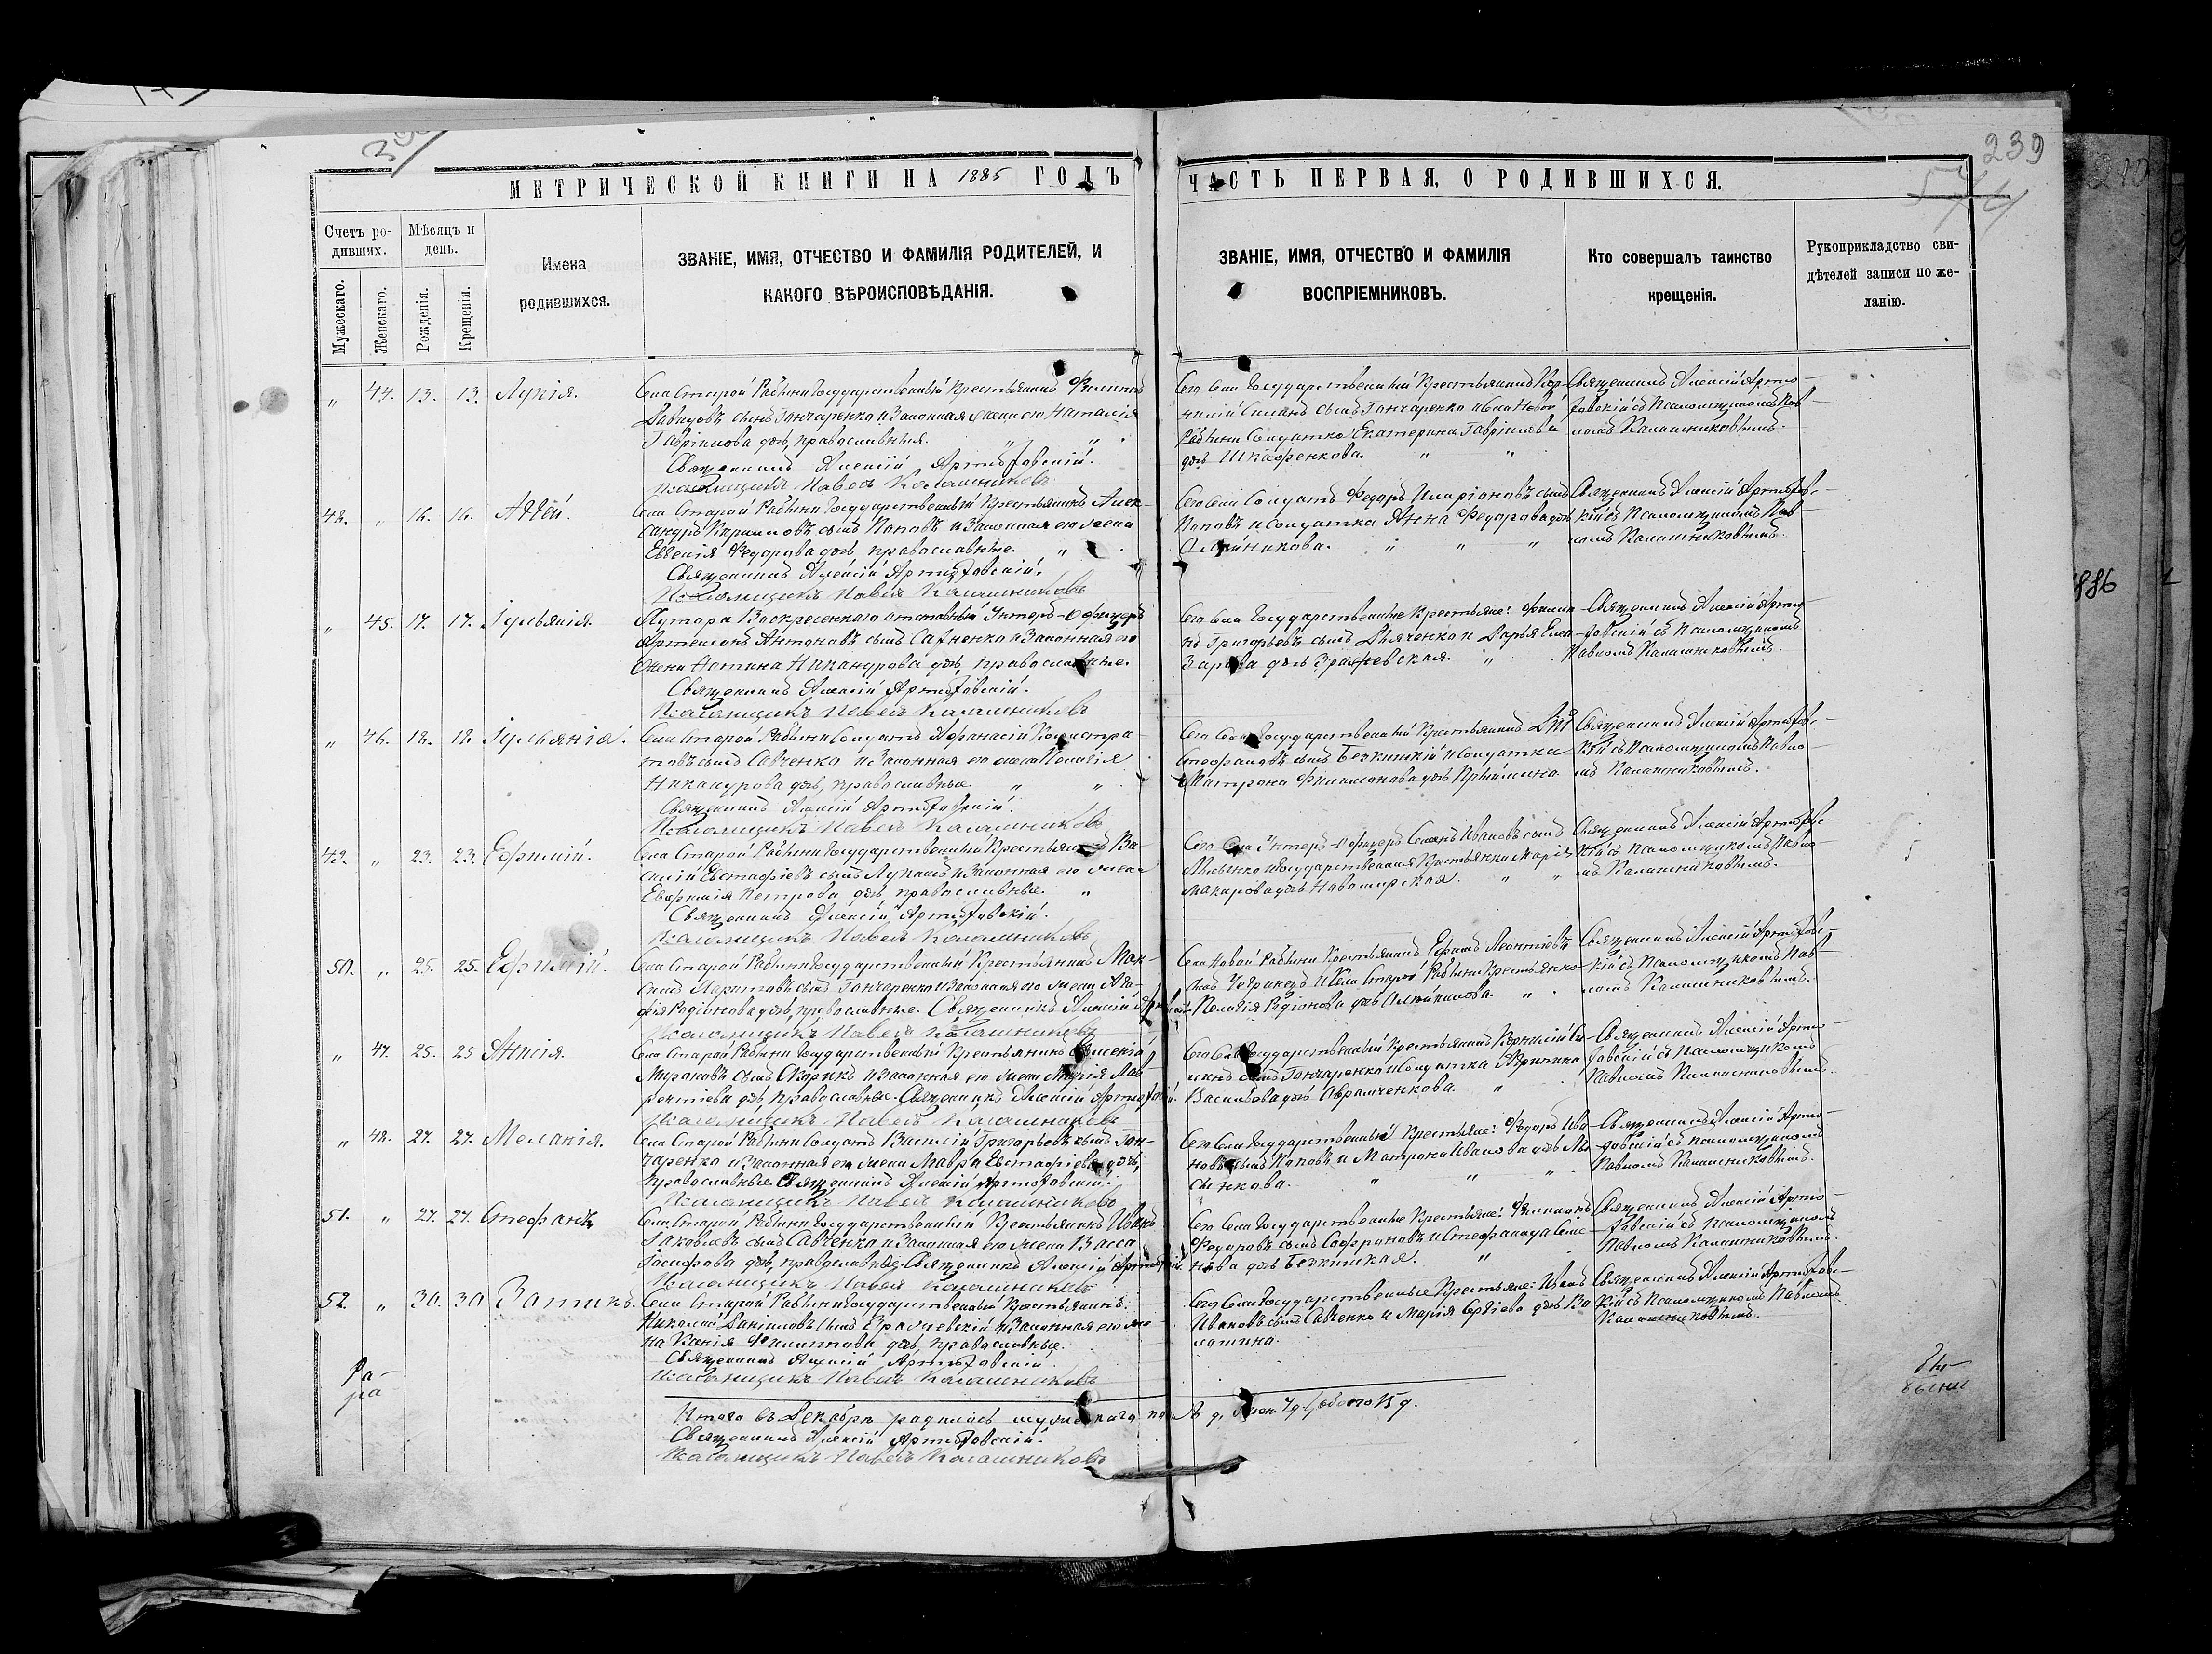 239
МЕТРИЧЕСКОЙ КНИГИ НА 1885 ГОДЪ
ЧАСТЬ ПЕРВАЯ, О РОДИВШИХСЯ.
Счетъ ро-
дившихъ.
Мужескаго.
Женскаго.
Мѣсяцъ и
день.
Рожденія.
Крещенія.
Имена
родившихся.
ЗВАНІЕ, ИМЯ, ОТЧЕСТВО И ФАМИЛІЯ РОДИТЕЛЕЙ, И
КАКОГО ВѢРОИСПОВѢДАНІЯ.
ЗВАНІЕ, ИМЯ, ОТЧЕСТВО И ФАМИЛІЯ
ВОСПРІЕМНИКОВЪ.
Кто совершалъ таинство
крещенія.
Рукоприкладство сви-
дѣтелей записи по же-
ланію.
" 44. 13. 13. Лукія.
Села Старой Рябины Государственный Крестьянинъ Филиппъ
Давидовъ сынъ Гончаренко и Законная жена его Наталія
Гавріилова дочь, православные. " "
Священникъ Алексій Артюховскій.
Псаломщикъ Павелъ Калашниковъ
Сего Села Государственный Крестьянинъ Кор-
нилій Силинъ сынъ Гончаренко и Села Новой
Рябины Солдатка Екатерина Гавріилова
дочь " "
Священникъ Алексій Артю-
ховскій съ Псаломщикомъ Пав-
ломъ Калашниковымъ.
48. " 16. 16.
Села Старой Рябины Государственный Крестьянинъ Алек-
сандръ Кирилловъ сынъ Поповъ и Законная его жена
Евгенія Федорова дочь, православные. "
Священникъ Алексій Артюховскій.
Псаломщикъ Павелъ Калашниковъ
Сего Села Солдатъ Федоръ Иларіоновъ сынъ
Поповъ и Солдатка Анна Федорова дочь
Олейникова. " " "
Священникъ Алексій Артюхов-
кій съ Псаломщикомъ Пав-
ломъ Калашниковымъ.
" 45. 17. 17. Іульянія.
Хутора Воскресенскаго отставный Унтеръ-Офицеръ
Артемонъ Антоновъ сынъ Сахненко и Законная его
жена Никандрова дочь, православные.
Священникъ Алексій Артюховскій.
Псаломщикъ Павелъ Калашниковъ
Сего Села Государственные Крестьяне: Филип-
пъ Григорьевъ сынъ Дьяченко и Дарья Елеа-
зарова дочь Зражевская. "
Священникъ Алексій Артю-
ховскій съ Псаломщикомъ
Павломъ Калашниковымъ.
" 46. 18. 18. Іульянія.
Села Старой Рябины Солдатъ Афанасій Калистра-
товъ сынъ Савченко и Законная его жена Пелагія
Никандрова дочь, православные. " "
Священникъ Алексій Артюховскій.
Псаломщикъ Павелъ Калашниковъ
Сего Села Государственный Крестьянинъ
Стефановъ сынъ и Солдатка
Матрона Филимонова дочь
Священникъ Алексій Артюхов-
кій съ Псаломщикомъ Павло-
мъ Калашниковымъ.
49. " 23. 23. Ефимій.
Села Старой Рябины Государственный Крестьянинъ Ва-
силій Евстафіевъ сынъ и Законная его жена
Евфимія Петрова дочь, православные. "
Священникъ Алексій Артюховскій.
Псаломщикъ Павелъ Калашниковъ
Сего Села Унтеръ-Офицеръ Семенъ Ивановъ сынъ
и Государственная Крестьянка Марія
Макарова дочь " "
Священникъ Алексій Артюхов-
кій съ Псаломщикомъ Павло-
мъ Калашниковымъ.
50. " 25. 25. Ефимій.
Села Старой Рябины Государственный Крестьянинъ Мак-
симъ Харитовъ сынъ Гончаренко и Законная его жена Ага-
фія Родіонова дочь, православные. Священникъ Алексій
Псаломщикъ Павелъ Калашниковъ
Села Новой Рябины Крестьянинъ Ефимъ Леонтіевъ
и Села Старой Рябины Крестьянка
Пелагія Родіонова дочь "
Священникъ Алексій Артюхов-
кій съ Псаломщикомъ Пав-
ломъ Калашниковымъ.
" 47. 25. 25 Анисія.
Села Старой Рябины Государственный Крестьянинъ
Мироновъ сынъ Скорикъ и Законная его жена Марія Лав-
рентіева дочь, православные. Священникъ Алексій Артюховскій.
Псаломщикъ Павелъ Калашниковъ
Сего Села Государственный Крестьянинъ Корнилій Си-
линъ сынъ Гончаренко и Солдатка
Васильева дочь Авраменкова. "
Священникъ Алексій Артю-
ховскій съ Псаломщикомъ
Павломъ Калашниковымъ.
" 48. 27. 27. Меланія.
Села Старой Рябины Солдатъ Василій Григорьевъ сынъ Гон-
чаренко и Законная его жена Мавра Евстафіева дочь,
православные. Священникъ Алексій Артюховскій.
Псаломщикъ Павелъ Калашниковъ
Сего Села Государственные Крестьяне: Федоръ Ива-
новъ сынъ Поповъ и Матрона Иванова дочь Лы-
сенкова. " " "
Священникъ Алексій Артю-
ховскій съ Псаломщикомъ
Павломъ Калашниковымъ.
51. " 27. 27. Стефанъ
Села Старой Рябины Государственный Крестьянинъ Иванъ
Іаковлевъ сынъ Савченко и Законная его жена Васса
Іосифова дочь, православные. Священникъ Алексій
Псаломщикъ Павелъ Калашниковъ
Сего Села Государственные Крестьяне: Филимонъ
Федоровъ сынъ Софроновъ и Стефанида Симе-
нова дочь "
Священникъ Алексій Артю-
ховскій съ Псаломщикомъ
Павломъ Калашниковымъ.
52. " 30. 30 Зотикъ.
Села Старой Рябины Государственный Крестьянинъ:
Николай Даниловъ сынъ Зражевскій и Законная его же-
на Ксенія Филиппова дочь, православные.
Священникъ Алексій Артюховскій.
Псаломщикъ Павелъ Калашниковъ
Сего Села Государственные Крестьяне: Иванъ
Ивановъ сынъ Савченко и Марія Сергіева дочь
Священникъ Алексій Артюхов-
кій съ Псаломщикомъ Павломъ
Калашниковымъ.
Итого въ Декабрѣ родилось мужескаго пола
Священникъ Алексій Артюховскій.
Псаломщикъ Павелъ Калашниковъ
1886